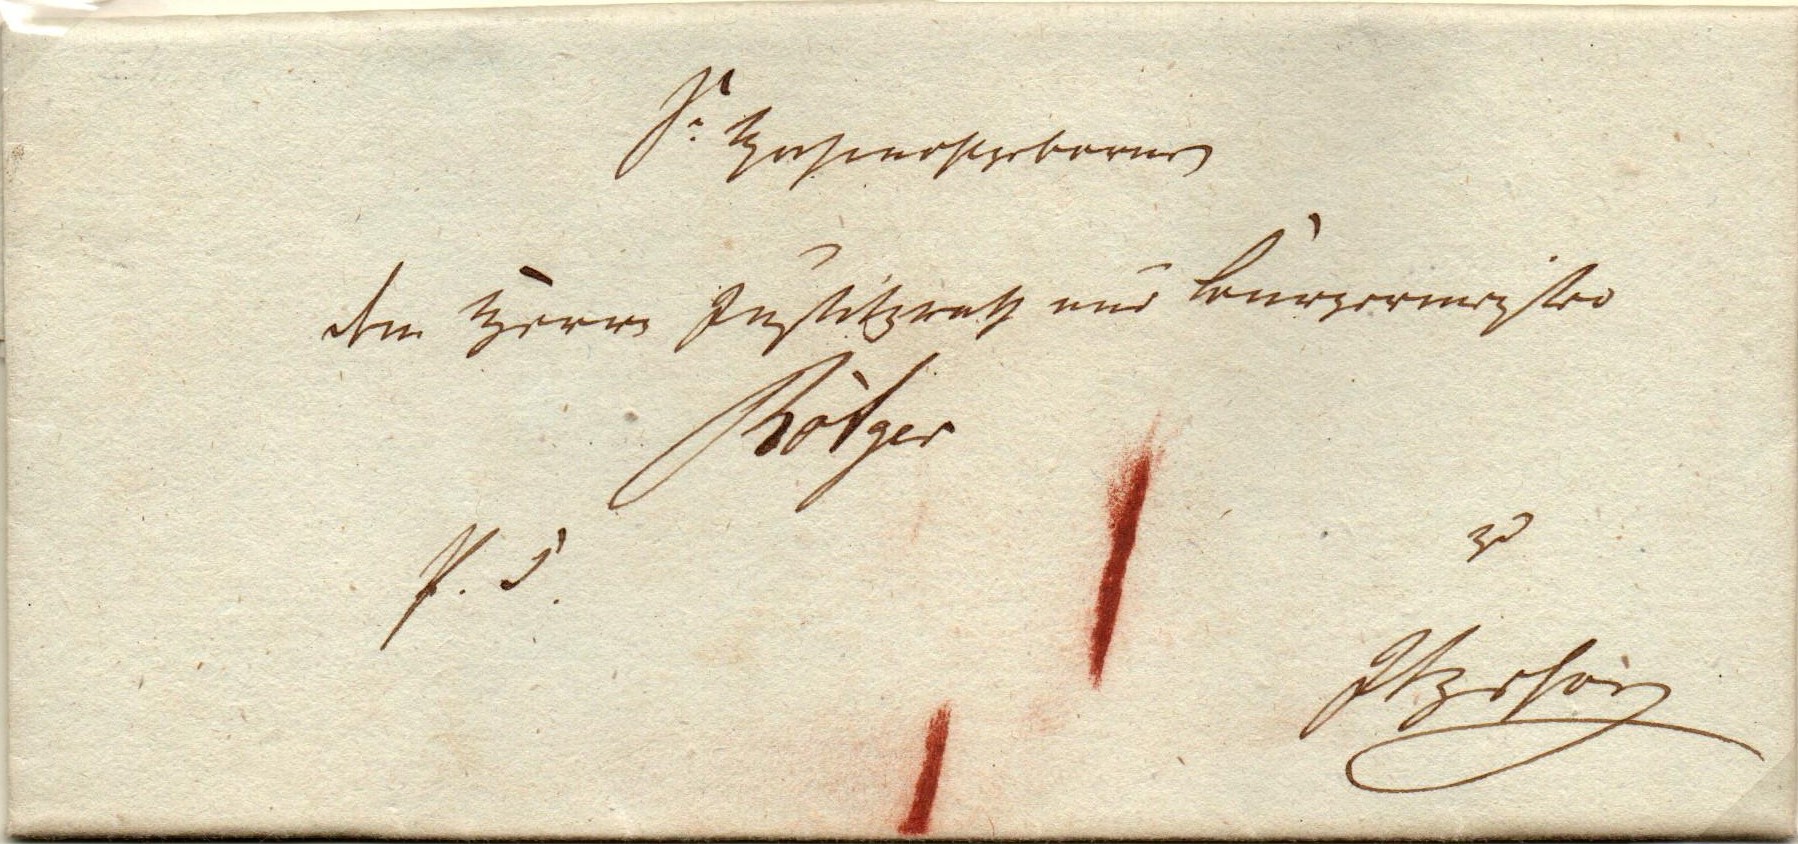 Sr Hochwohlgeboren
dem Herrn Justizrath und Bürgermeister
Rötger
P. S.
zu
Itzehoe